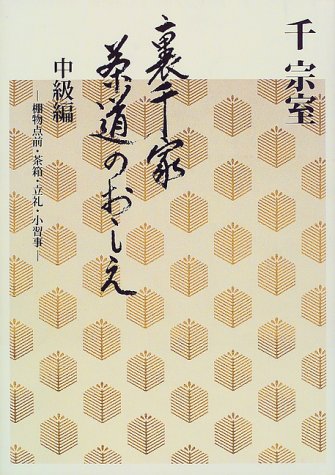 千 宗室
裏千家
茶道のおしえ
中級編
―棚物点前・茶箱・立礼・小習事―